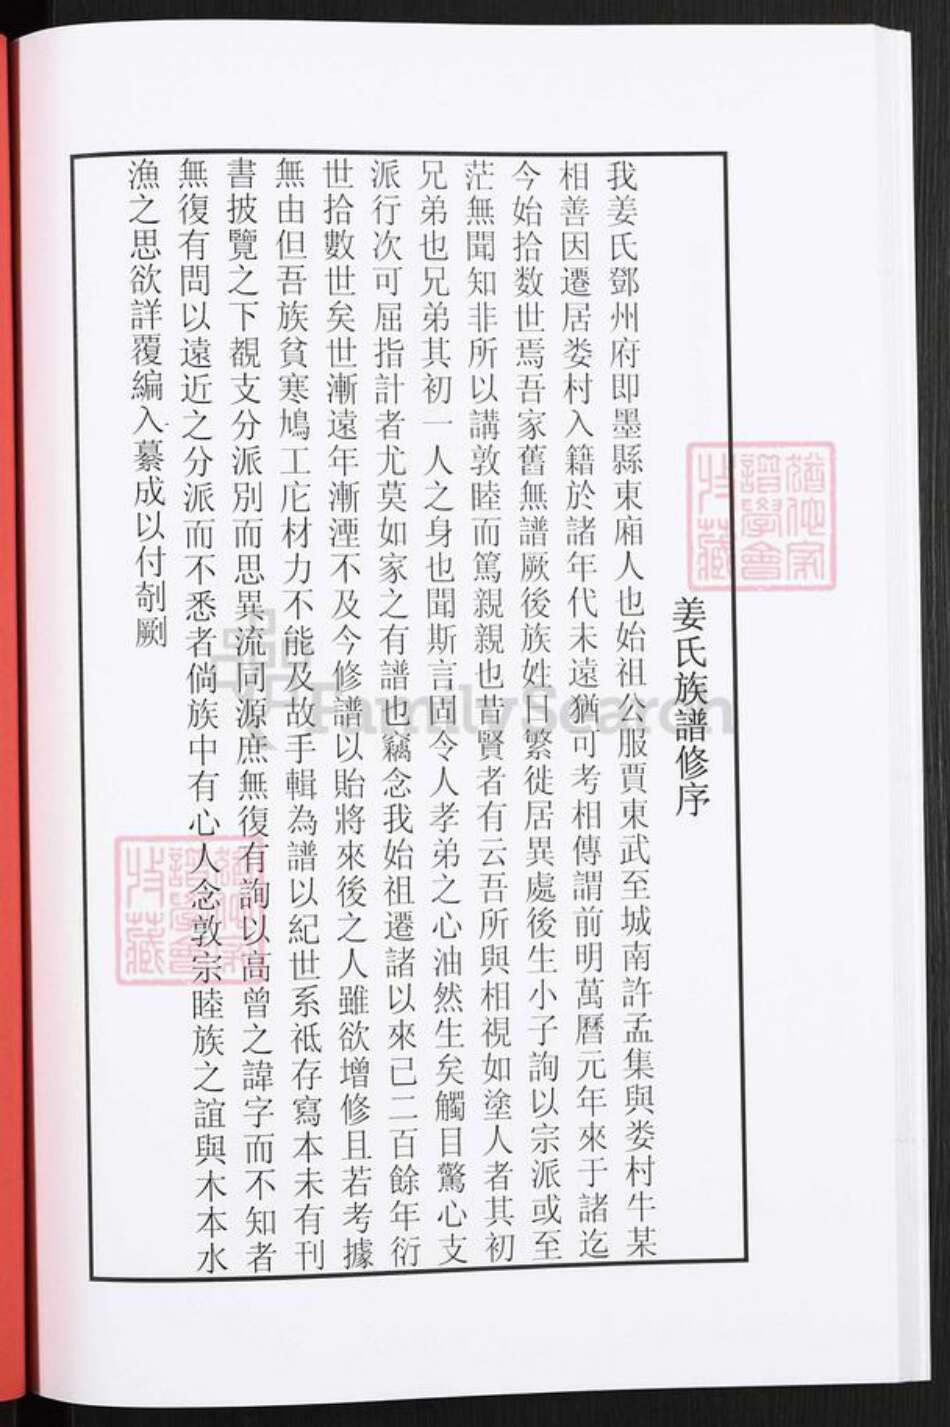 姜氏族譜修序
我姜氏鄧州府即墨縣東廂人也始祖公服賈東武至城南許孟集與娄村牛某
相善因遷居娄村入籍於諸年代未遠猶可考相傳謂前明萬曆元年來于諸迄
今始拾数世焉吾家舊無譜厥後族姓日繁徙居異處後生小子詢以宗派或至
茫無聞知非所以講敦睦而篤親親也昔賢者有云吾所與相視如塗人者其初
兄弟也兄弟其初一人之身也聞斯言固令人孝弟之心油然生矣觸目驚心支
派行次可屈指計者尤莫如家之有譜也竊念我始祖遷諸以來已二百餘年衍
世拾數世矣世漸遠年漸湮不及今修譜以貽將來後之人雖欲增修且若考據
無由但吾族貧寒鳩工庀材力不能及故手輯為譜以紀世系祗存寫本未有刊
書披覽之下覩支分派別而思異流同源庶無復有詢以高曾之諱字而不知者
無復有問以遠近之分派而不悉者倘族中有心人念敦宗睦族之誼與木本水
漁之思欲詳覆編入纂成以付剞劂
猶他家譜學會收藏
猶他家譜學會收藏
FamilySearch